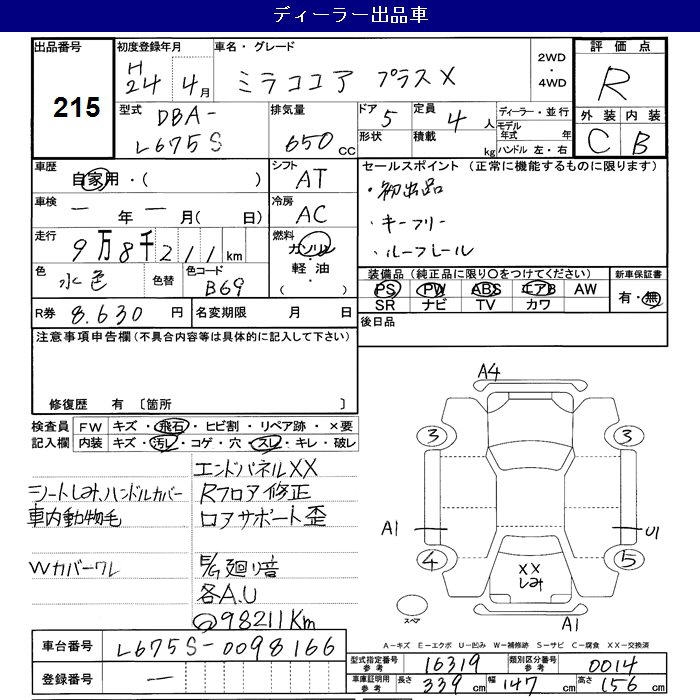 ディーラー出品車
出品番号
215
初度登録年月
H24年4月
車名・グレード
ミラココア プラスX
2WD・4WD
評価点
R
型式
DBA-L675S
排気量
650cc
ドア 5
形状
定員 4人
積載 kg
ディーラー・並行
モデル年式 年
ハンドル 左・右
外装 内装
C B
車歴
自家用・( )
シフト
AT
セールスポイント (正常に機能するものに限ります)
・初出品
・キーフリー
・ルーフレール
車検
一年一月( 日)
冷房
AC
走行
9万8千211km
燃料
ガソリン
軽油
・( )
色
水色
色替
色コード
B69
装備品(純正品に限り○をつけてください)
PS PW ABS エアB AW
SR ナビ TV カワ
新車保証書
有・無
R券 8.630円
名変期限 月 日
後日品
注意事項申告欄(不具合内容等は具体的に記入して下さい)
修復歴 有〔箇所 〕
検査員記入欄
FW キズ・飛石・ヒビ割・リペア跡・×要
内装 キズ・汚レ・コゲ・穴・スレ・キレ・破レ
エンドパネルXX
シートしみ、ハンドルカバー Rフロア修正
車内動物毛 ロアサポート歪
Wカバーワレ E/G廻り音
各A.U
98211Km
A4
3 3
A1 U1
4 5
XX
しみ
スペア
A1
A-キズ E-エクボ U-凹み W-補修跡 S-サビ C-腐食 XX-交換済
車台番号 L675S-0098166
登録番号 一
型式指定番号参考 16319
類別区分番号参考 0014
車庫証明用参考 長さ 339cm 幅 147cm 高さ 156cm